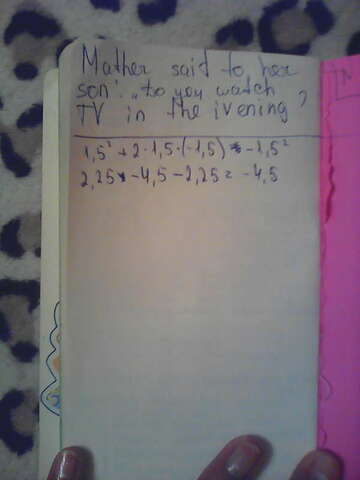 Mather said to her
son: „to you watch
TV in the ivening?
1,5² + 2·1,5·(-1,5) - 1,5²
2,25 -4,5 - 2,25 = -4,5